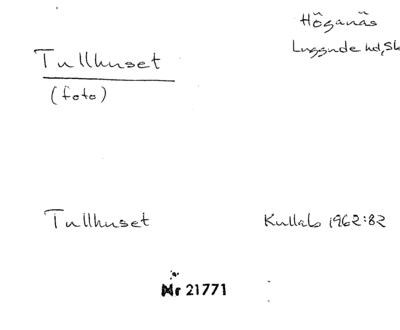 Höganäs
Luggude hd, Sk
Tullhuset
(foto)
Tullhuset
Kullabo 1962:82
Nr 21771